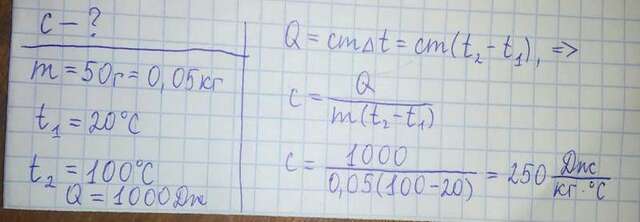 c – ?
m = 50г = 0,05кг
t₁ = 20°C
t₂ = 100°C
Q = 1000Дж
Q = cmΔt = cm(t₂ - t₁), =>
c = Q / m(t₂ - t₁)
c = 1000 / 0,05(100 - 20) = 250 Дж / кг·°C